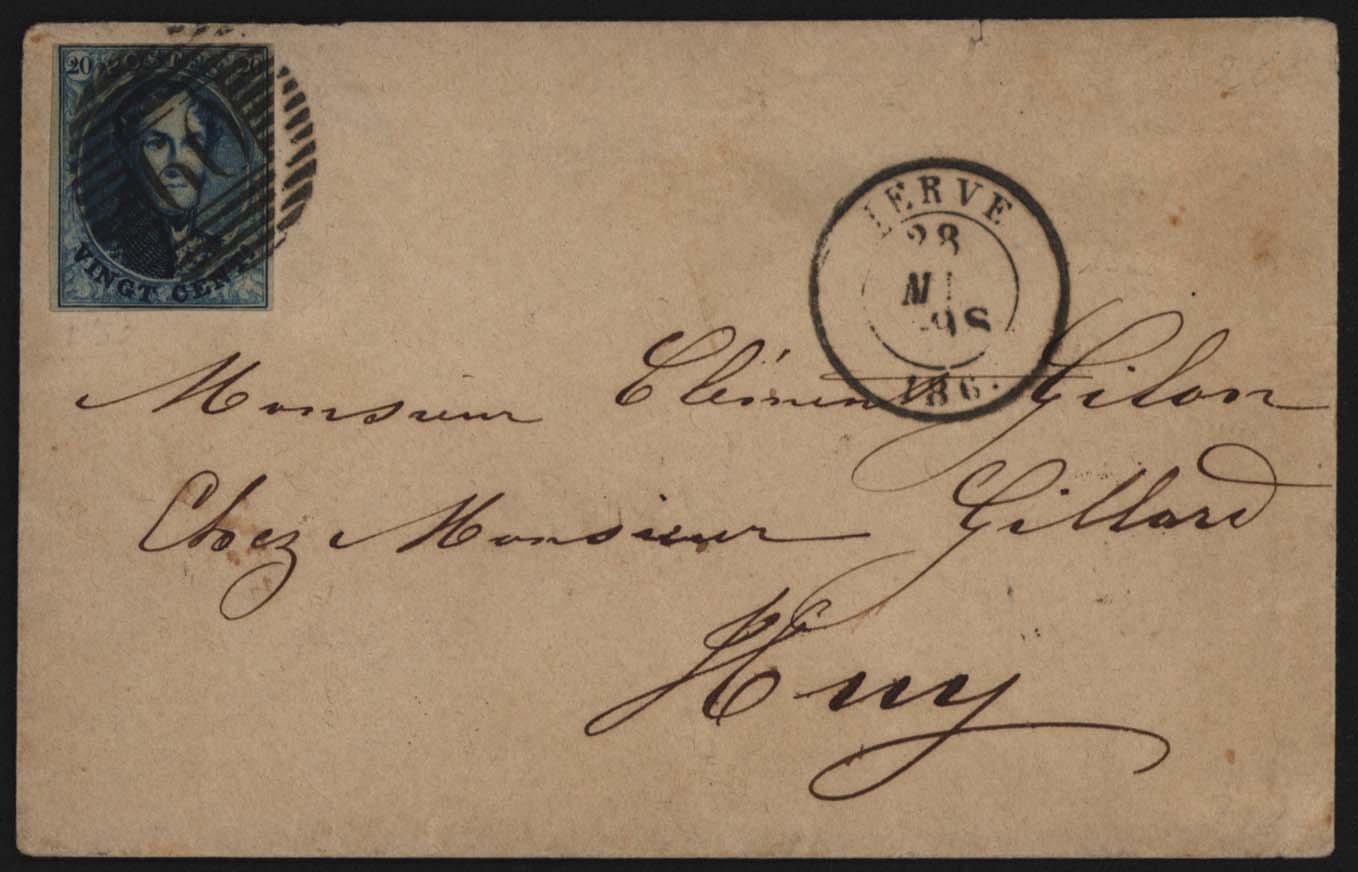 20 POSTES 20
VINGT CENTS
HERVE
28
9S
186
Monsieur Clément Gilon
Chez Monsieur Gillard
Huy